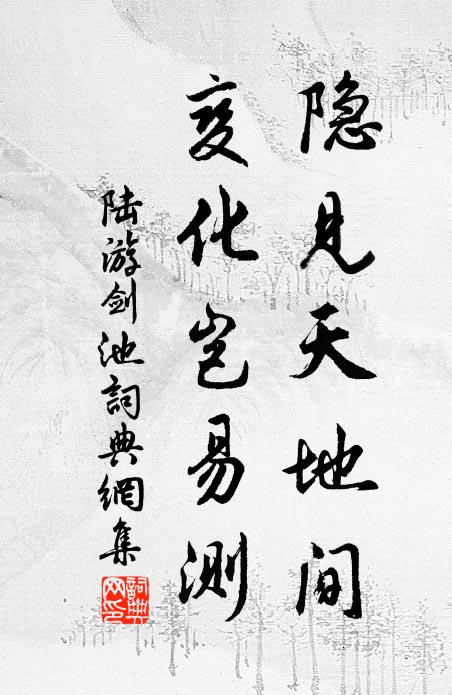 隐见天地间
变化岂易测
陆游剑池詞典網集
詞典